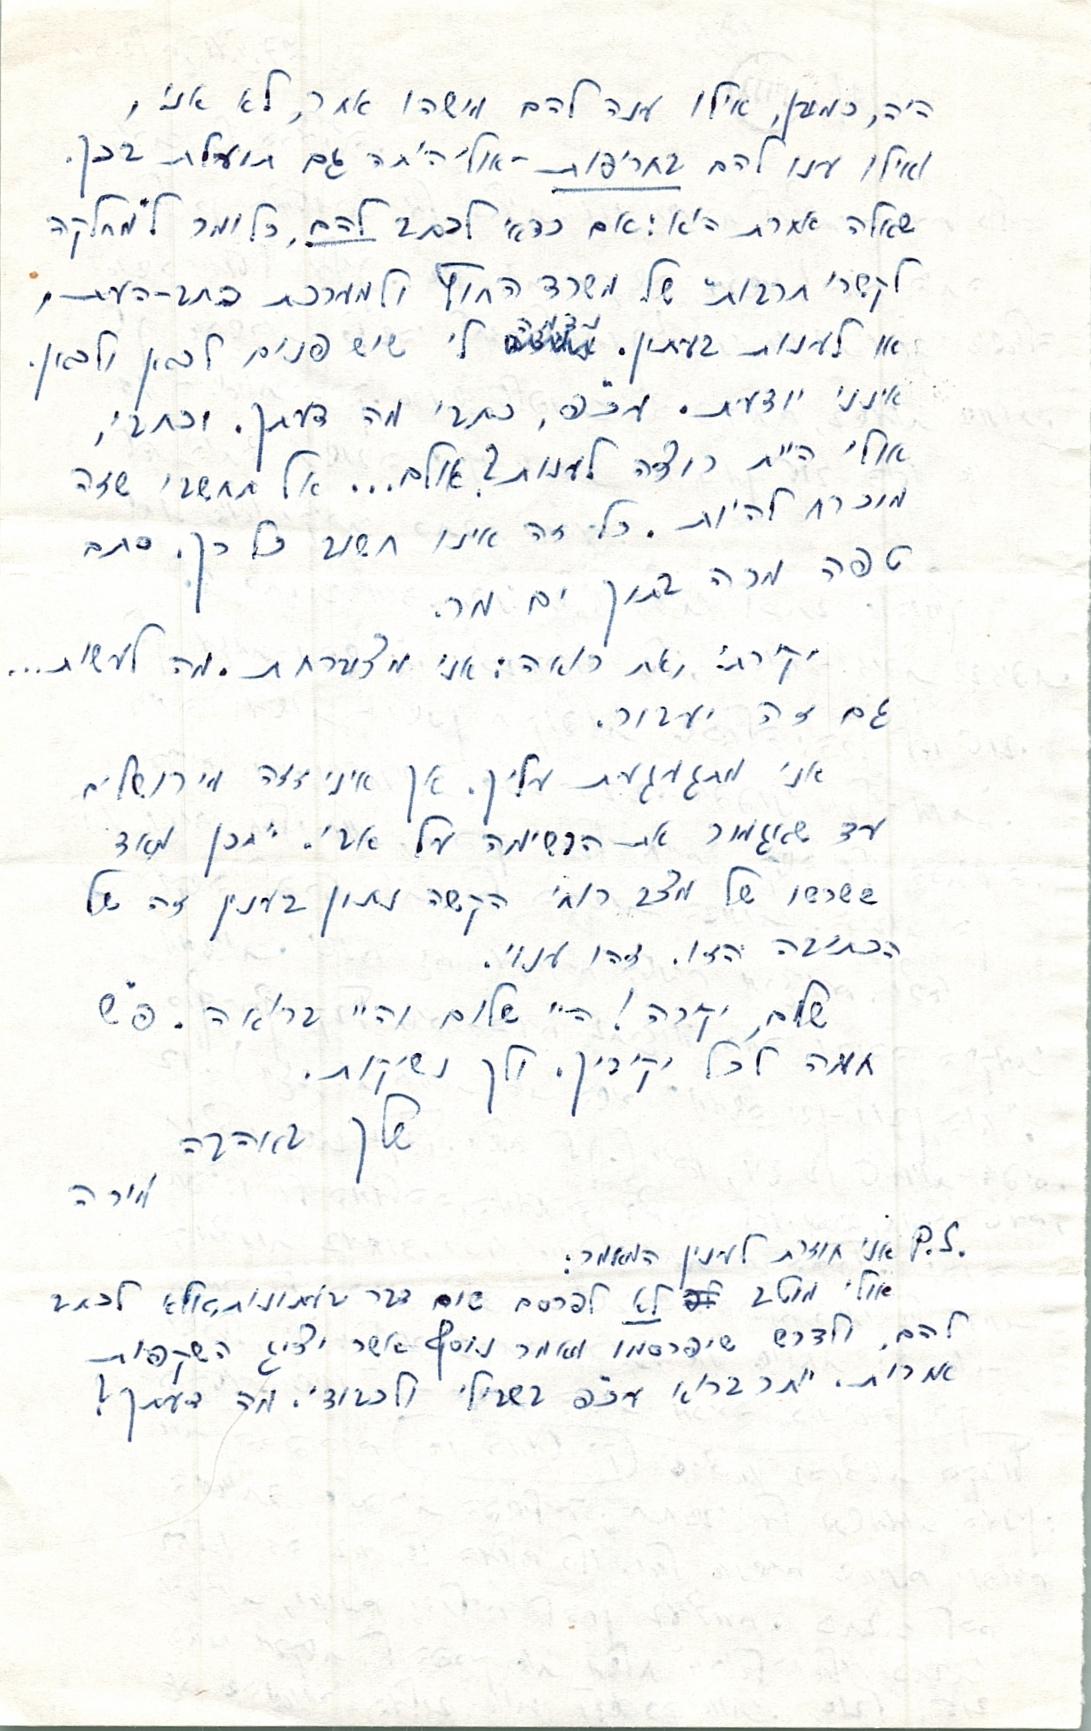 היה, כמובן, אילו ענה להם מישהו אחר, לא אני,
ואילו ענו להם בחריפות – אולי היתה גם תועלת בכך.
שאלה אחרת היא: אם כדאי לכתב להם, כלומר ל"מחלקה
לקשרי תרבות" של משרד החוץ ולמערכת כתב-העת,
או לענות בעתון. נדמה לי שיש פנים לכאן ולכאן.
אינני יודעת. עכ"פ, כתבי מה דעתך. וכתבי,
אולי היית רוצה לענות? אולם... אל תחשבי שזה
מוכרח להיות. כל זה אינו חשוב כל כך. סתם
טפה מרה בתוך ים מר.
יקירתי, את רואה: אני מצוברחת. מה לעשות...
גם זה יעבור.
אני מתגעגעת עליך. אך איני זזה מירושלים
עד שאגמור את הרשימה על אבי. יתכן מאד
ששרשו של מצב רוחי הקשה נתון בענין זה של
הכתיבה הזו. זהו ענוי.
שלום, יקרה! היי שלום והיי בריאה. פ"ש
חמה לכל יקיריך. ולך נשיקות.
שלך באהבה
מירה
P.S. אני חוזרת לענין המאמר:
אולי מוטב לא לפרסם שום דבר בעתונות, אלא לכתב
להם, ולדרש שיפרסמו מאמר נוסף אשר יציג השקפות
אחרות. יותר בריא עכ"פ בשבילי ולכבודי. מה דעתך?